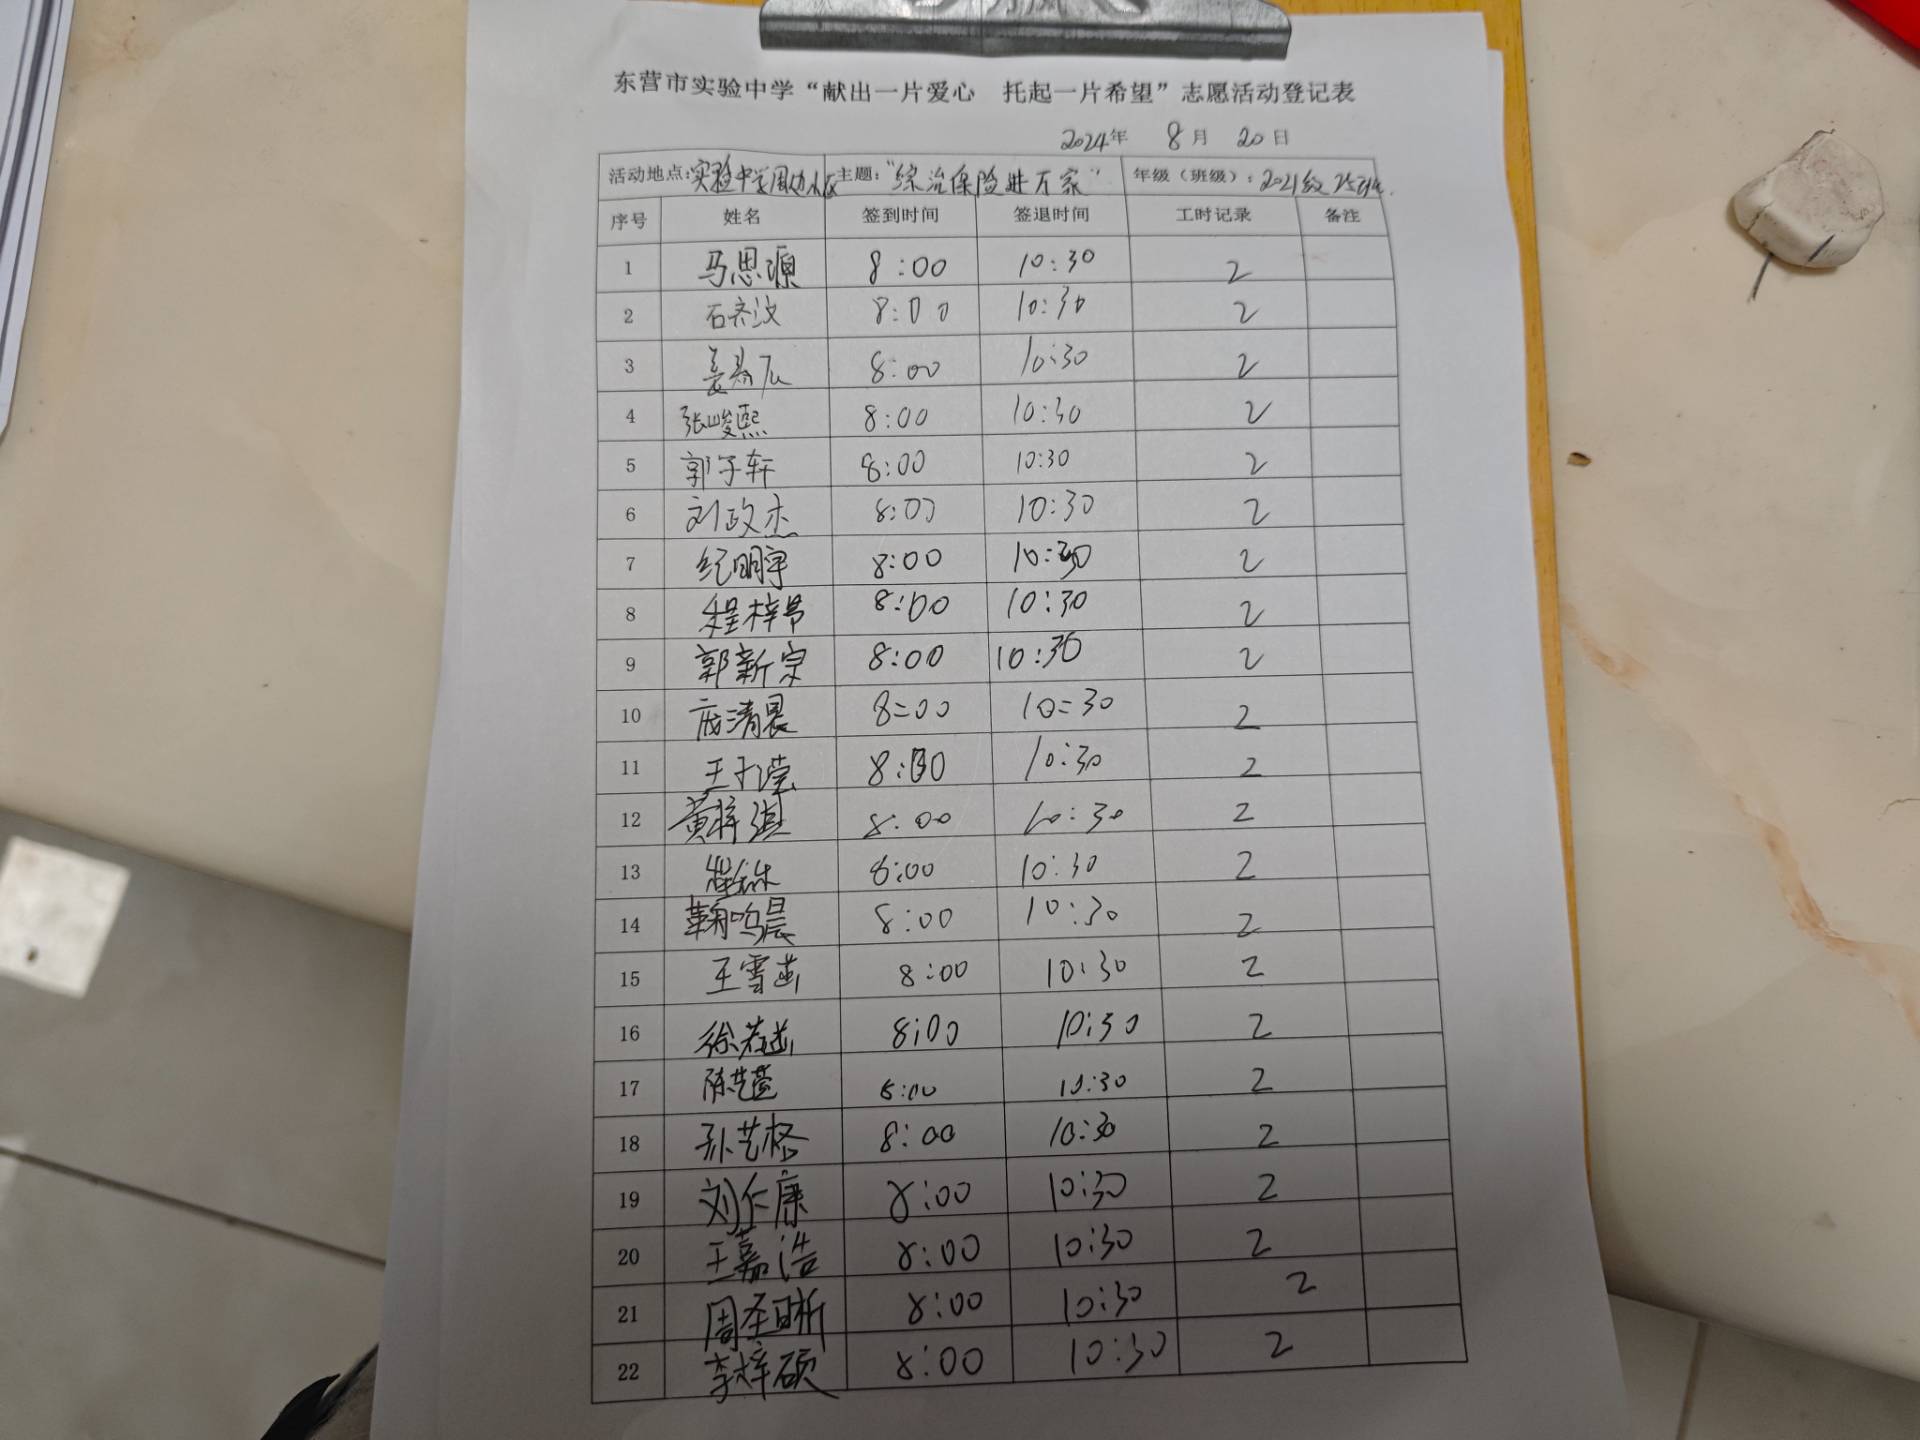 东营市实验中学“献出一片爱心 托起一片希望”志愿活动登记表
2024年 8月 20日
活动地点:实验中学周边小区 主题:“综治保险进万家” 年级(班级):2021级
序号 姓名 签到时间 签退时间 工时记录 备注
1 马思源 8:00 10:30 2
2 石 8:00 10:30 2
3 姜 8:00 10:30 2
4 张峻熙 8:00 10:30 2
5 郭子轩 8:00 10:30 2
6 刘政杰 8:00 10:30 2
7 纪明宇 8:00 10:30 2
8 程梓 8:00 10:30 2
9 郭新宗 8:00 10:30 2
10 清晨 8:00 10:30 2
11 王子滢 8:00 10:30 2
12 黄梓淇 8:00 10:30 2
13 8:00 10:30 2
14 鞠鸣晨 8:00 10:30 2
15 王雪茁 8:00 10:30 2
16 徐若 8:00 10:30 2
17 陈艺萱 8:00 10:30 2
18 孙艺格 8:00 10:30 2
19 刘仁康 8:00 10:30 2
20 王嘉浩 8:00 10:30 2
21 周圣晰 8:00 10:30 2
22 李梓硕 8:00 10:30 2